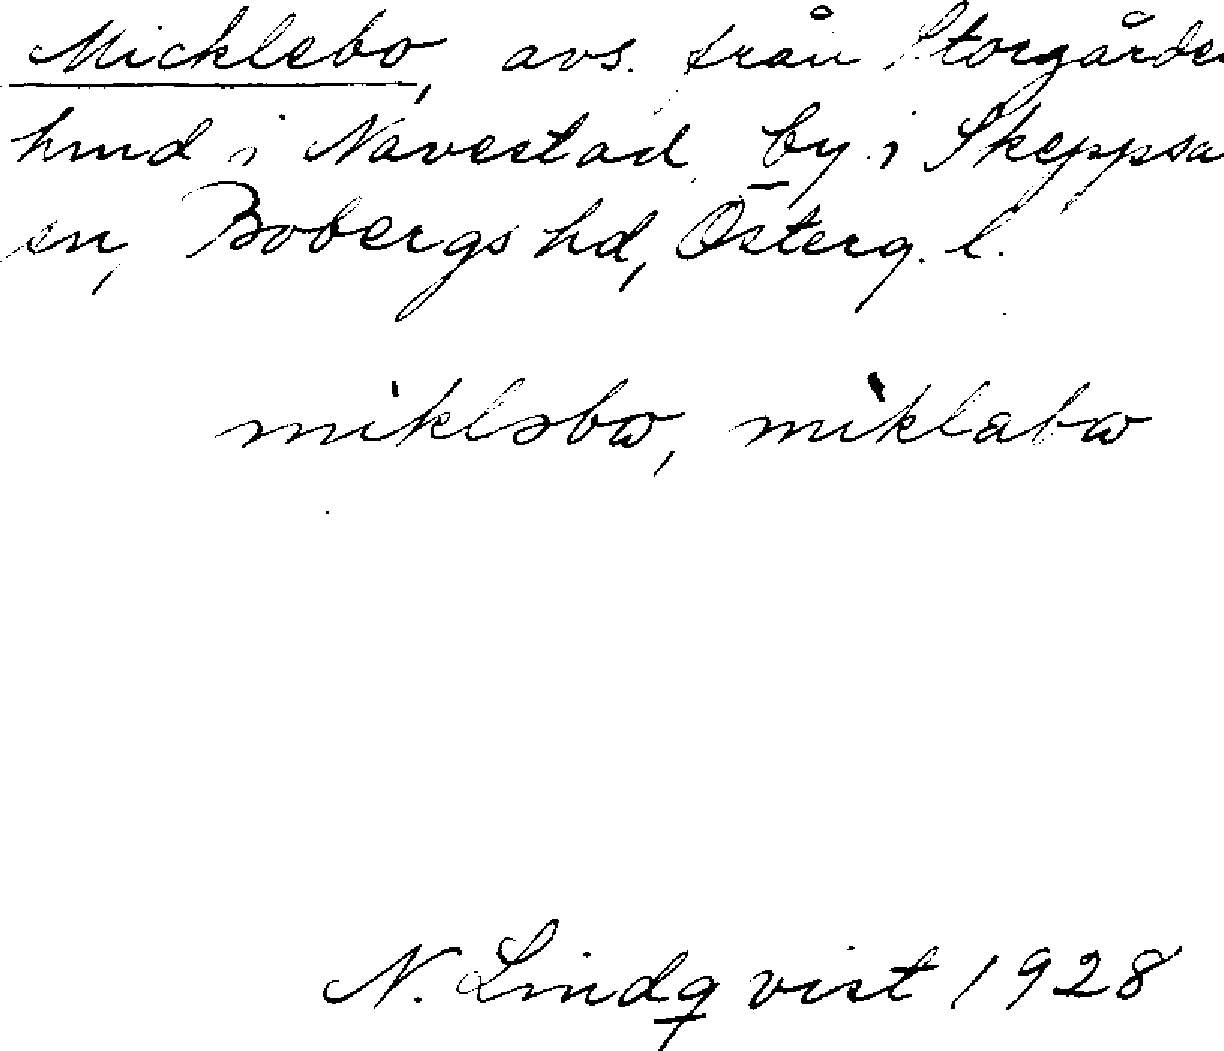 Micklebo, avs. från Storgården
hmd i Navestad by i Skeppsa
sn, Bobergs hd, Österg. l.
miklsbω, miklabω
N. Lindqvist 1928